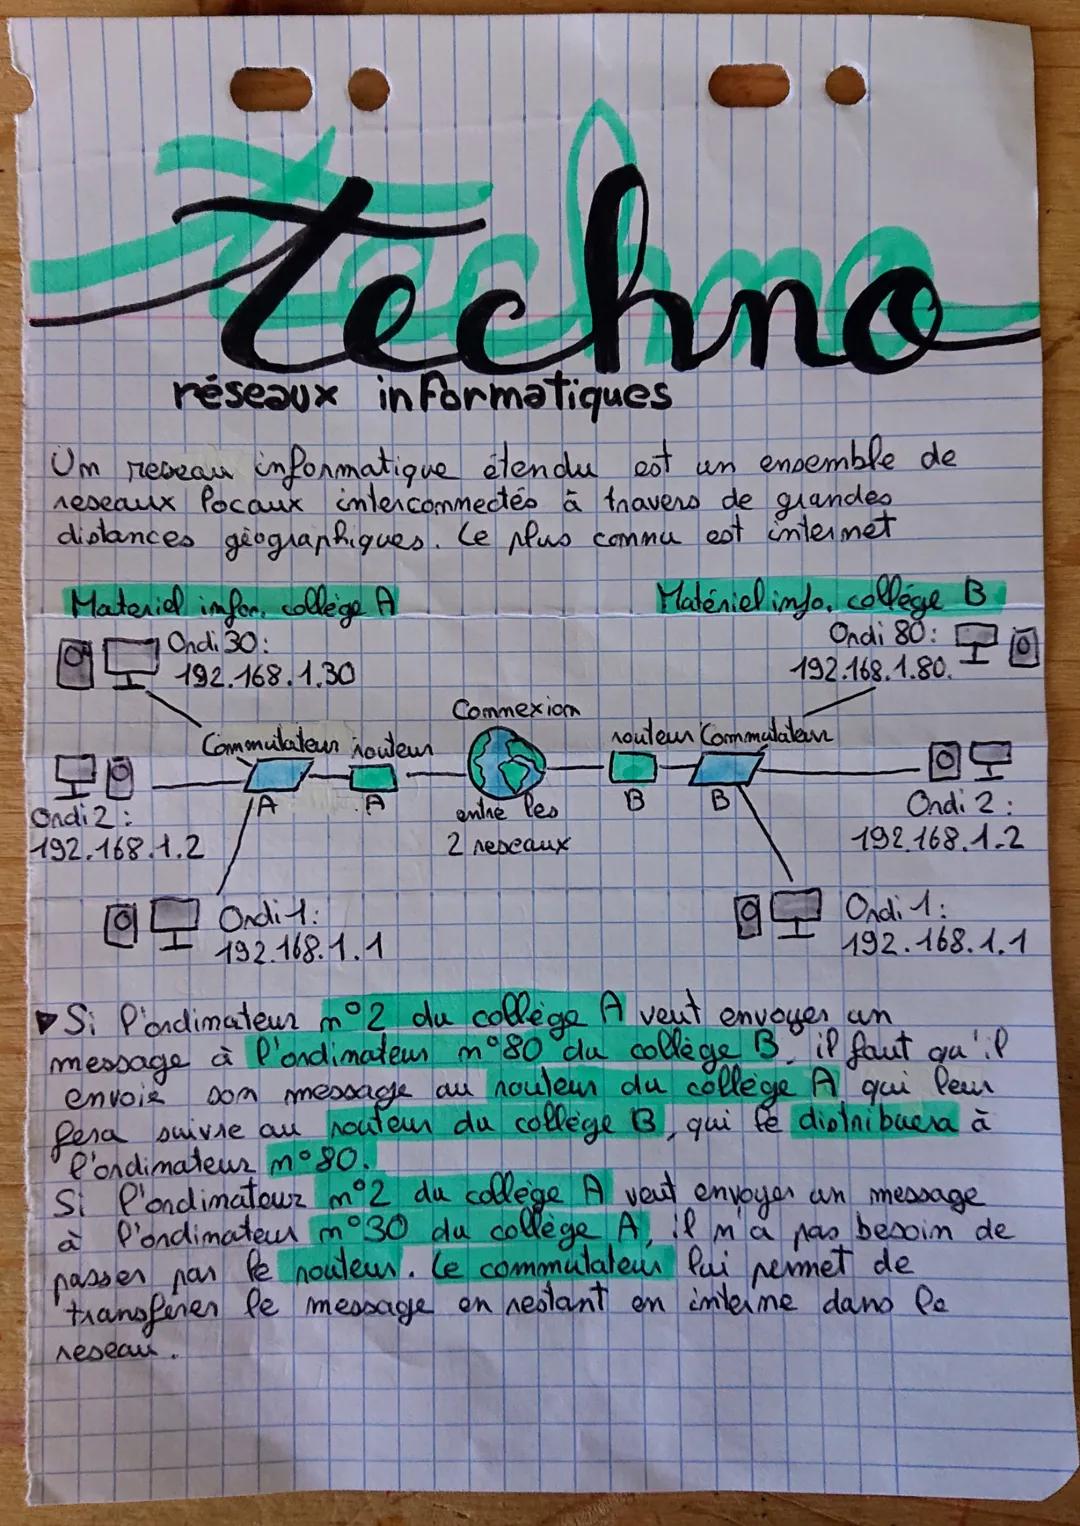 techno
réseaux informatiques
Un reseau informatique étendu est un ensemble de
reseaux locaux interconnectés à travers de grandes
distances géographiques. Le plus connu est internet
Materiel infor. collège A
Matériel info. collège B
Ordi 30:
192.168.1.30
Ordi 80:
192.168.1.80.
Connexion
Commutateur routeur
routeur Commutateur
A A
B B
entre les
2 reseaux
Ordi 2:
192.168.1.2
Ordi 2:
192.168.1.2
Ordi 1:
192.168.1.1
Ordi 1:
192.168.1.1
▶ Si l'ordinateur n°2 du collège A veut envoyer un
message à l'ordinateur n°80 du collège B, il faut qu'il
envoie son message au routeur du collège A qui leur
fera suivre au routeur du collège B, qui le distribuera à
l'ordinateur n°80.
Si l'ordinateur n°2 du collège A veut envoyer un message
à l'ordinateur n°30 du collège A, il n'a pas besoin de
passer par le routeur. Le commutateur lui permet de
transferer le message en restant en interne dans le
reseau.